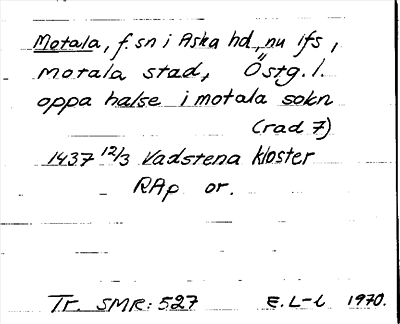 Motala, f. sn i Aska hd, nu ifs,
Motala stad, Östg. l.
oppa halse i motala sokn
(rad 7)
1437 12/3 Vadstena kloster
RAp or.
Tr. SMR: 527 E. L-l 1970.